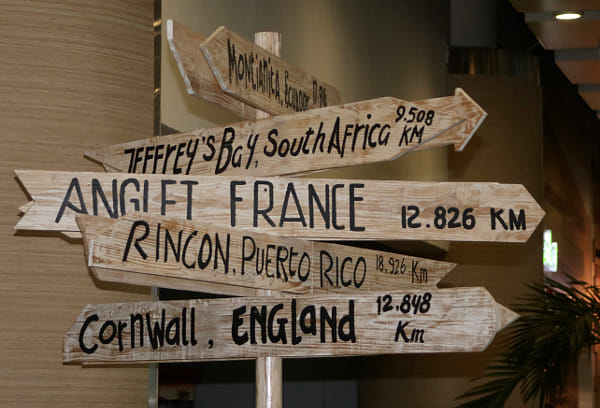 Montañita, Ecuador
JEFFREY'S BAY, SOUTH AFRICA 9.508 KM
ANGLET FRANCE 12.826 KM
RINCON, PUERTO RICO 18.926 Km
CORNWALL, ENGLAND 12.848 Km